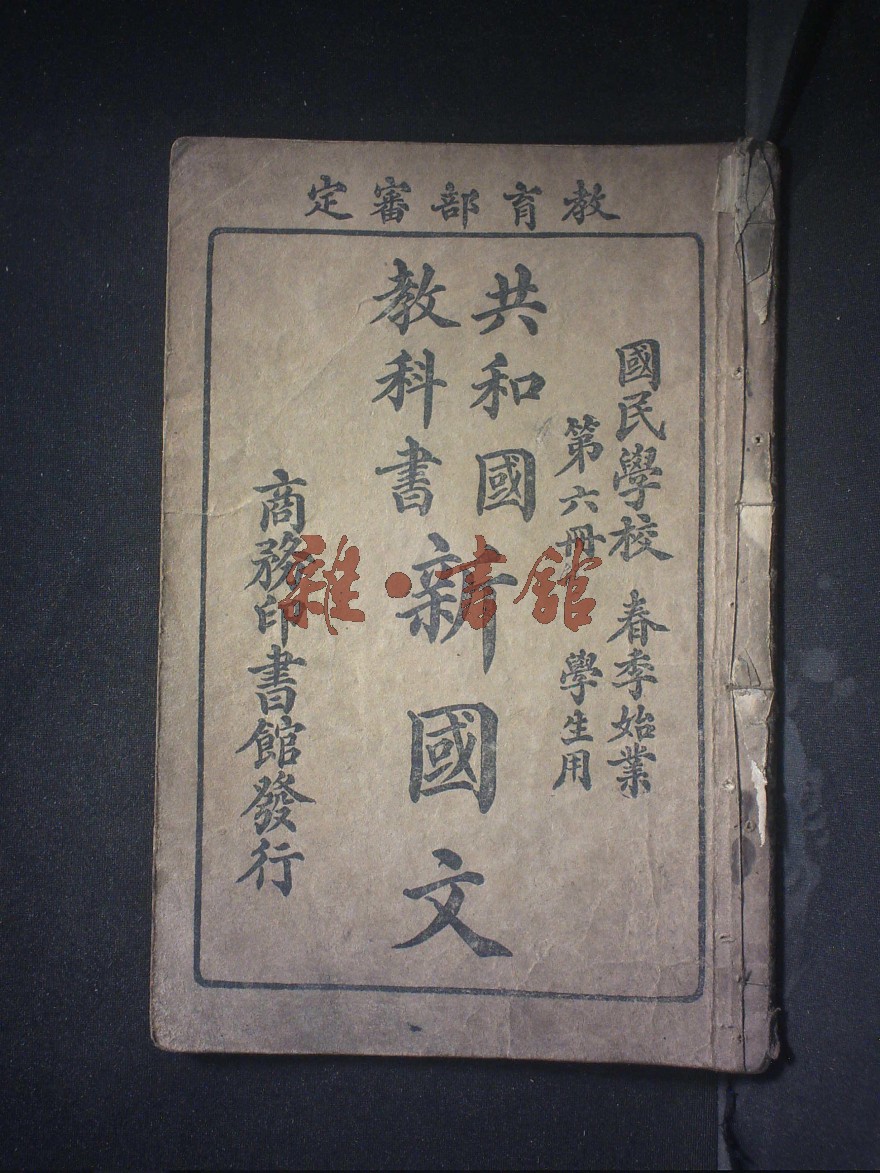 教育部審定
國民學校 春季始業
第六冊 學生用
共和國
教科書
新國文
商務印書館發行
雜·書館